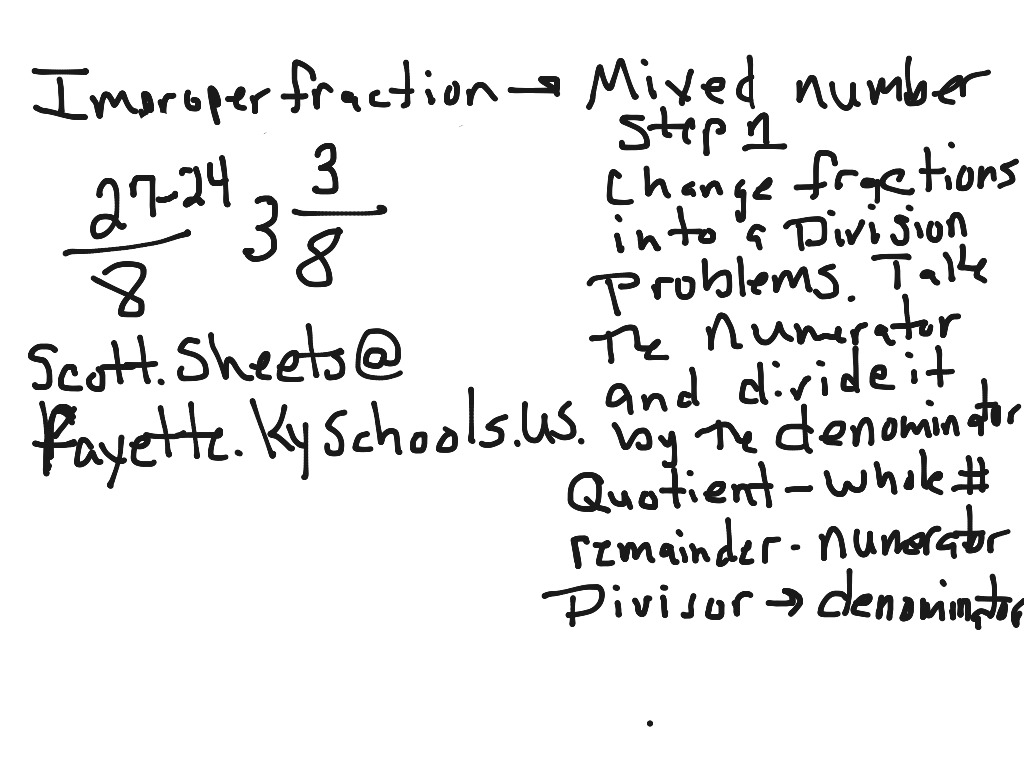 Improper fraction → Mixed number
27-24 3 3
8 8
Scott.Sheets@
fayette.Kyschools.us.
Step 1
Change fractions
into a Division
Problems. Take
The Numerator
and divide it
by The denominator
Quotient - whole #
remainder - numerator
Divisor → denominator